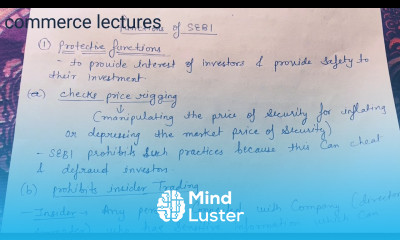 commerce lectures
Functions of SEBI
(1) protective functions
- to provide interest of investors & provide safety to
their investment.
(a) checks price rigging
↓
(manipulating the price of security for inflating
or depressing the market price of security)
- SEBI prohibits such practices because this can cheat
& defraud investor.
(b) prohibits insider Trading
- Insider → Any with Company
Mind
Luster